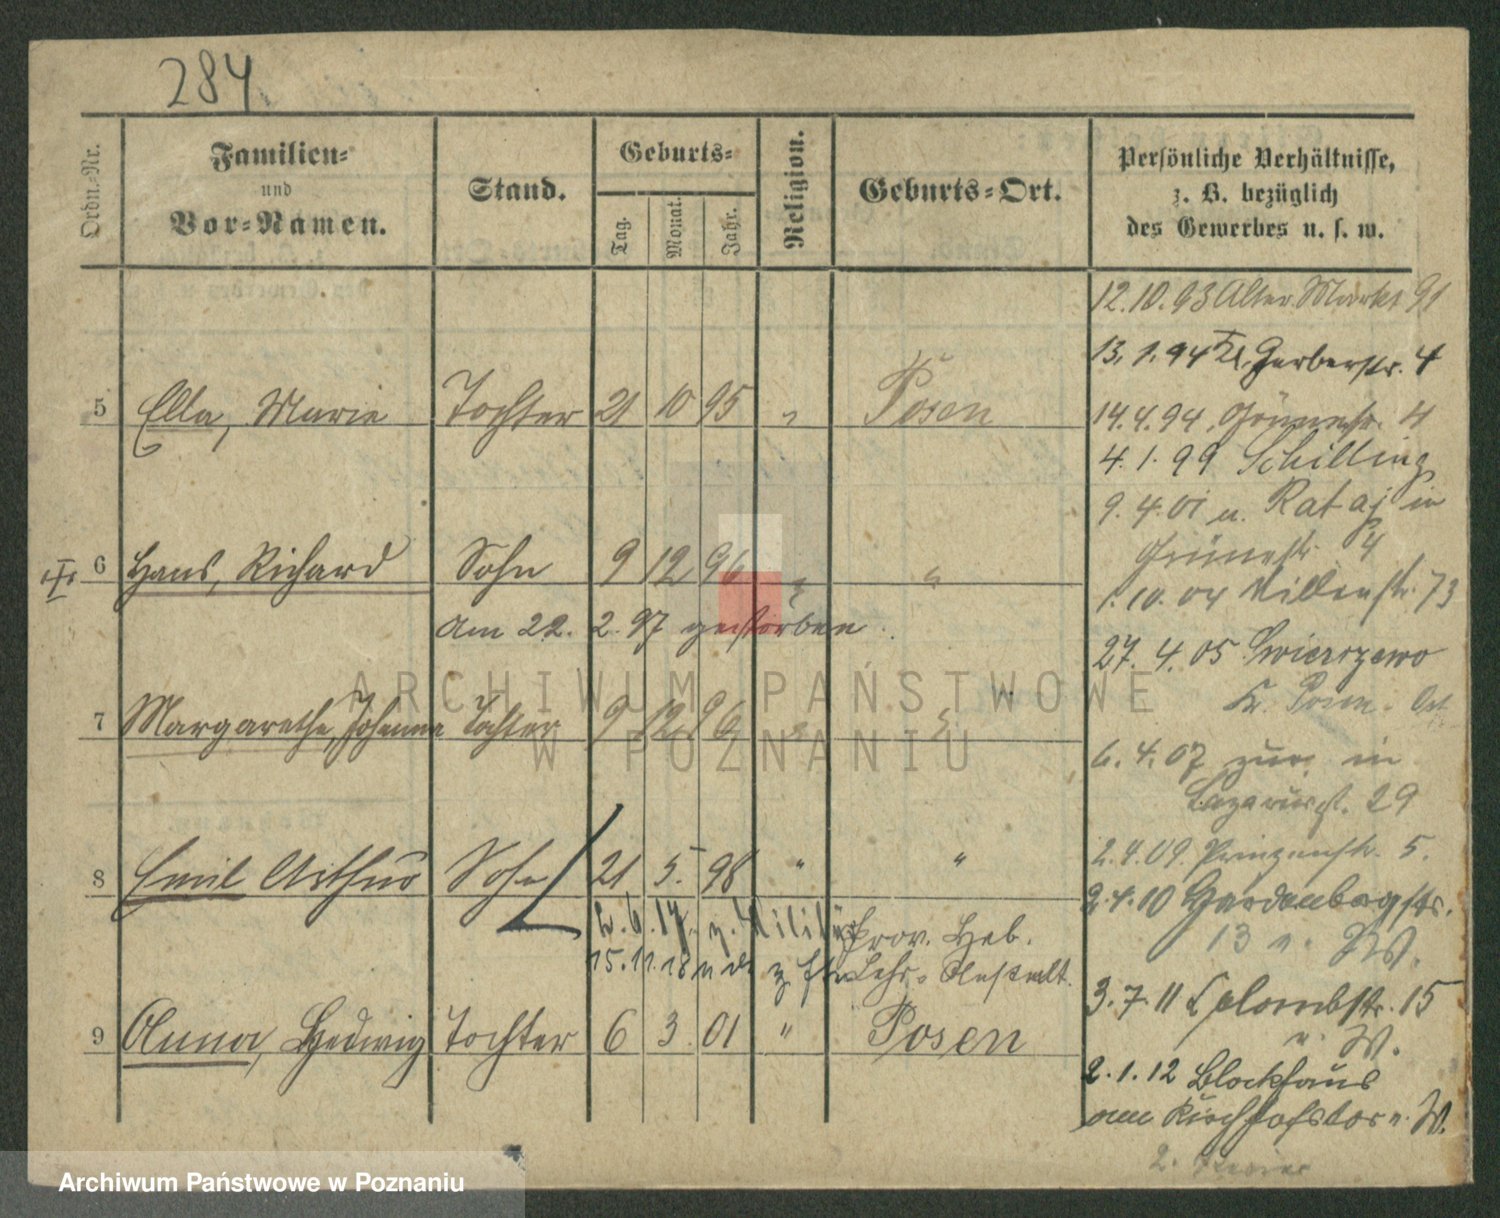 284
Ordn.-Nr.
Familien-
und
Vor-Namen.
Stand.
Geburts-
Tag.
Monat.
Jahr.
Religion.
Geburts-Ort.
Persönliche Verhältnisse,
z. B. bezüglich
des Gewerbes u. s. w.
12.10.93 Alter Markt 91
13.1.94 Kl. Gerberstr. 4
5 Ella, Marie Tochter 21 10 95 " Posen
14.4.94 Grünestr. 4
4.1.99 Schilling
9.4.01 u. Rataj in
Grünestr. 4
6 Hans, Richard Sohn 9 12 96 " "
1.10.04 Villenstr. 73
am 22. 2. 97 gestorben.
27.4.05 Zwierzewo
Kr. Posen. Ost
7 Margarethe, Johanna Tochter 9 12 96 " "
6.4.07 zur. in
Lazarusstr. 29
8 Emil Arthur Sohn 21 5. 98 " "
2.4.09. Prinzenstr. 5.
2.4.10
13 u. W.
2.6.17. z. Militär
15.11.18
Prov. Heb.
Lehr-Anstalt.
9 Anna, Hedwig Tochter 6 3 01 " Posen
3.7.11 Colombstr. 15
u. W.
2.1.12 Blockhaus
am Kirchhofstor u. W.
2.
ARCHIWUM PAŃSTWOWE
W POZNANIU
Archiwum Państwowe w Poznaniu